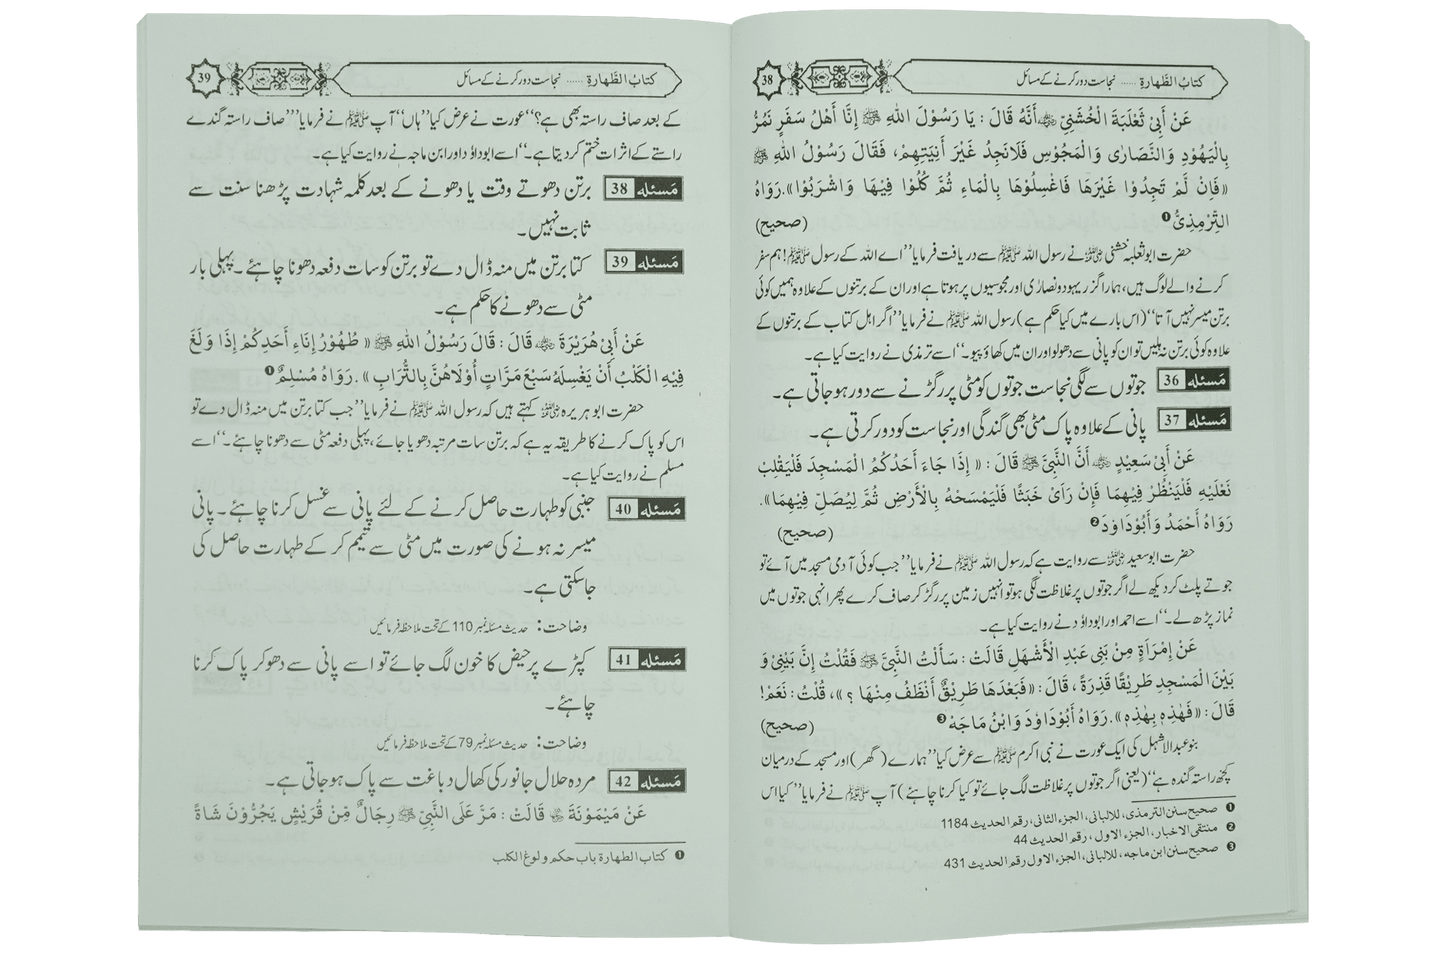 38
کتابُ الطَّهارة ...... نجاست دور کرنے کے مسائل
عَنْ أَبِيْ ثَعْلَبَةَ الْخُشَنِيِّ ﷜ أَنَّهُ قَالَ : يَا رَسُوْلَ اللهِ ﷺ إِنَّا أَهْلُ سَفَرٍ نَمُرُّ
بِالْيَهُوْدِ وَالنَّصَارٰى وَالْمَجُوْسِ فَلَانَجِدُ غَيْرَ آنِيَتِهِمْ، فَقَالَ رَسُوْلُ اللهِ ﷺ
«فَإِنْ لَمْ تَجِدُوْا غَيْرَهَا فَاغْسِلُوْهَا بِالْمَاءِ ثُمَّ كُلُوْا فِيْهَا وَاشْرَبُوْا».رَوَاهُ
التِّرْمِذِيُّ❶ (صحيح)
حضرت ابوثعلبہ خشنی ﷜ نے رسول اللہ ﷺ سے دریافت فرمایا’’اے اللہ کے رسول ﷺ! ہم سفر
کرنے والے لوگ ہیں، ہمارا گزر یہود و نصاریٰ اور مجوسیوں پر ہوتا ہے اور ان کے برتنوں کے علاوہ ہمیں کوئی
برتن میسر نہیں آتا‘‘(اس بارے میں کیا حکم ہے)رسول اللہ ﷺ نے فرمایا’’اگر اہل کتاب کے برتنوں کے
علاوہ کوئی برتن نہ ملیں تو ان کو پانی سے دھولو اور ان میں کھاؤ پیو۔‘‘اسے ترمذی نے روایت کیا ہے۔
مَسئله 36 جوتوں سے لگی نجاست جوتوں کو مٹی پر رگڑنے سے دور ہوجاتی ہے۔
مَسئله 37 پانی کے علاوہ پاک مٹی بھی گندگی اور نجاست کو دور کرتی ہے۔
عَنْ أَبِيْ سَعِيْدٍ ﷜ أَنَّ النَّبِيَّ ﷺ قَالَ : « إِذَا جَاءَ أَحَدُكُمُ الْمَسْجِدَ فَلْيَقْلِبْ
نَعْلَيْهِ فَلْيَنْظُرْ فِيْهِمَا فَإِنْ رَأىٰ خَبَثًا فَلْيَمْسَحْهُ بِالْأَرْضِ ثُمَّ لِيُصَلِّ فِيْهِمَا».
رَوَاهُ أَحْمَدُ وَ أَبُوْدَاوُدَ❷ (صحيح)
حضرت ابوسعید ﷜ سے روایت ہے کہ رسول اللہ ﷺ نے فرمایا’’جب کوئی آدمی مسجد میں آئے تو
جوتے پلٹ کر دیکھ لے اگر جوتوں پر غلاظت لگی ہو تو انہیں زمین پر رگڑ کر صاف کرے پھر انہی جوتوں میں
نماز پڑھ لے۔‘‘اسے احمد اور ابوداؤد نے روایت کیا ہے۔
عَنْ إِمْرَأَةٍ مِنْ بَنِيْ عَبْدِ الْأَشْهَلِ قَالَتْ : سَأَلْتُ النَّبِيَّ ﷺ فَقُلْتُ إِنَّ بَيْنِيْ وَ
بَيْنَ الْمَسْجِدِ طَرِيْقًا قَذِرَةً ، قَالَ : «فَبَعْدَهَا طَرِيْقٌ أَنْظَفُ مِنْهَا ؟»، قُلْتُ : نَعَمْ!
قَالَ : «فَهٰذِهٖ بِهٰذِهٖ».رَوَاهُ أَبُوْدَاوُدَ وَ ابْنُ مَاجَه❸ (صحيح)
بنو عبدالاشہل کی ایک عورت نے نبی اکرم ﷺ سے عرض کیا’’ہمارے (گھر) اور مسجد کے درمیان
کچھ راستہ گندہ ہے‘‘(یعنی اگر جوتوں پر غلاظت لگ جائے تو کیا کرنا چاہئے)آپ ﷺ نے فرمایا’’کیا اس
❶ صحیح سنن الترمذی، للالبانی، الجزء الثانی، رقم الحدیث 1184
❷ منتقی الاخبار، الجزء الاول ، رقم الحدیث 44
❸ صحیح سنن ابن ماجه ، للالبانی، الجزء الاول رقم الحدیث 431
39
کتابُ الطَّهارة ...... نجاست دور کرنے کے مسائل
کے بعد صاف راستہ بھی ہے؟‘‘عورت نے عرض کیا’’ہاں‘‘آپ ﷺ نے فرمایا’’’صاف راستہ گندے
راستے کے اثرات ختم کردیتا ہے۔‘‘اسے ابوداؤد اور ابن ماجہ نے روایت کیا ہے۔
مَسئله 38 برتن دھوتے وقت یا دھونے کے بعد کلمہ شہادت پڑھنا سنت سے
ثابت نہیں۔
مَسئله 39 کتا برتن میں منہ ڈال دے تو برتن کو سات دفعہ دھونا چاہئے۔ پہلی بار
مٹی سے دھونے کا حکم ہے۔
عَنْ أَبِيْ هُرَيْرَةَ ﷜ قَالَ : قَالَ رَسُوْلُ اللهِ ﷺ « طُهُوْرُ إِنَاءِ أَحَدِكُمْ إِذَا وَلَغَ
فِيْهِ الْكَلْبُ أَنْ يَغْسِلَهُ سَبْعَ مَرَّاتٍ أُوْلَاهُنَّ بِالتُّرَابِ ».رَوَاهُ مُسْلِمٌ❶
حضرت ابوہریرہ ﷜ کہتے ہیں کہ رسول اللہ ﷺ نے فرمایا’’جب کتا برتن میں منہ ڈال دے تو
اس کو پاک کرنے کا طریقہ یہ ہے کہ برتن سات مرتبہ دھویا جائے، پہلی دفعہ مٹی سے دھونا چاہئے۔‘‘اسے
مسلم نے روایت کیا ہے۔
مَسئله 40 جنبی کو طہارت حاصل کرنے کے لئے پانی سے غسل کرنا چاہئے۔ پانی
میسر نہ ہونے کی صورت میں مٹی سے تیمم کر کے طہارت حاصل کی
جاسکتی ہے۔
وضاحت: حدیث مسئلہ نمبر 110 کے تحت ملاحظہ فرمائیں
مَسئله 41 کپڑے پر حیض کا خون لگ جائے تو اسے پانی سے دھو کر پاک کرنا
چاہئے۔
وضاحت: حدیث مسئلہ نمبر 79 کے تحت ملاحظہ فرمائیں
مَسئله 42 مردہ حلال جانور کی کھال دباغت سے پاک ہوجاتی ہے۔
عَنْ مَيْمُوْنَةَ ﷞ قَالَتْ : مَرَّ عَلَى النَّبِيِّ ﷺ رِجَالٌ مِنْ قُرَيْشٍ يَجُرُّوْنَ شَاةً
❶ کتاب الطهارة باب حکم ولوغ الکلب